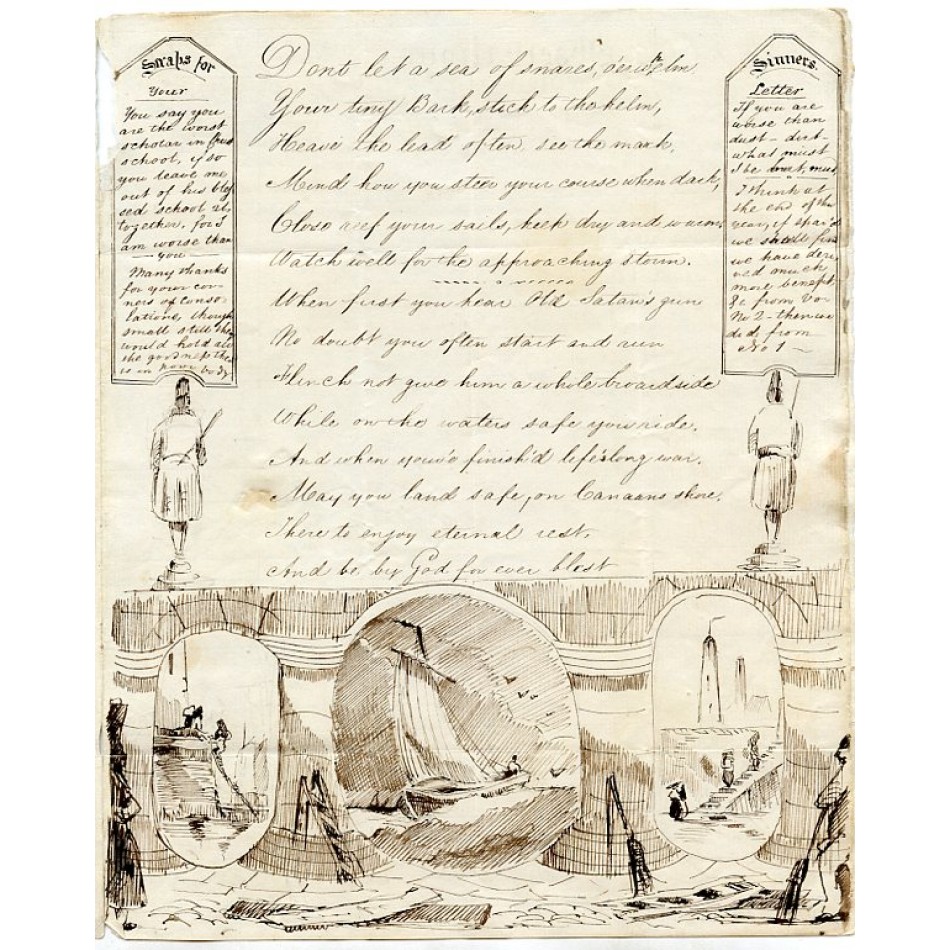 Scraps for
Your
You say you
are the worst
scholar in
school, if so
you leave me
out of his bles
sed school al
together, for I
am worse than
you
Many thanks
for your cor-
ners of conso-
lations, though
small still they
would hold all
the goodness the
is in poor body
Dont let a sea of snares, o'erwhelm
Your tiny Bark, stick to the helm,
Heave the lead often, see the mark,
Mind how you steer your course when dark,
Close reef your sails, keep dry and warm
Watch well for the approaching storm.
When first you hear Old Satan's gun
No doubt you often start and run
Flinch not give him a whole broadside
While on the waters safe you ride,
And when you've finish'd life's long war,
May you land safe, on Canaans shore,
There to enjoy eternal rest,
And be by God for ever blest
Sinners
Letter
If you are
worse than
dust - dirt -
what must
I be
I think at
the end of the
year, if spar'd
we shall find
we have deri
ved much
more benefit
&c from
No 2 - then we
did from
No 1